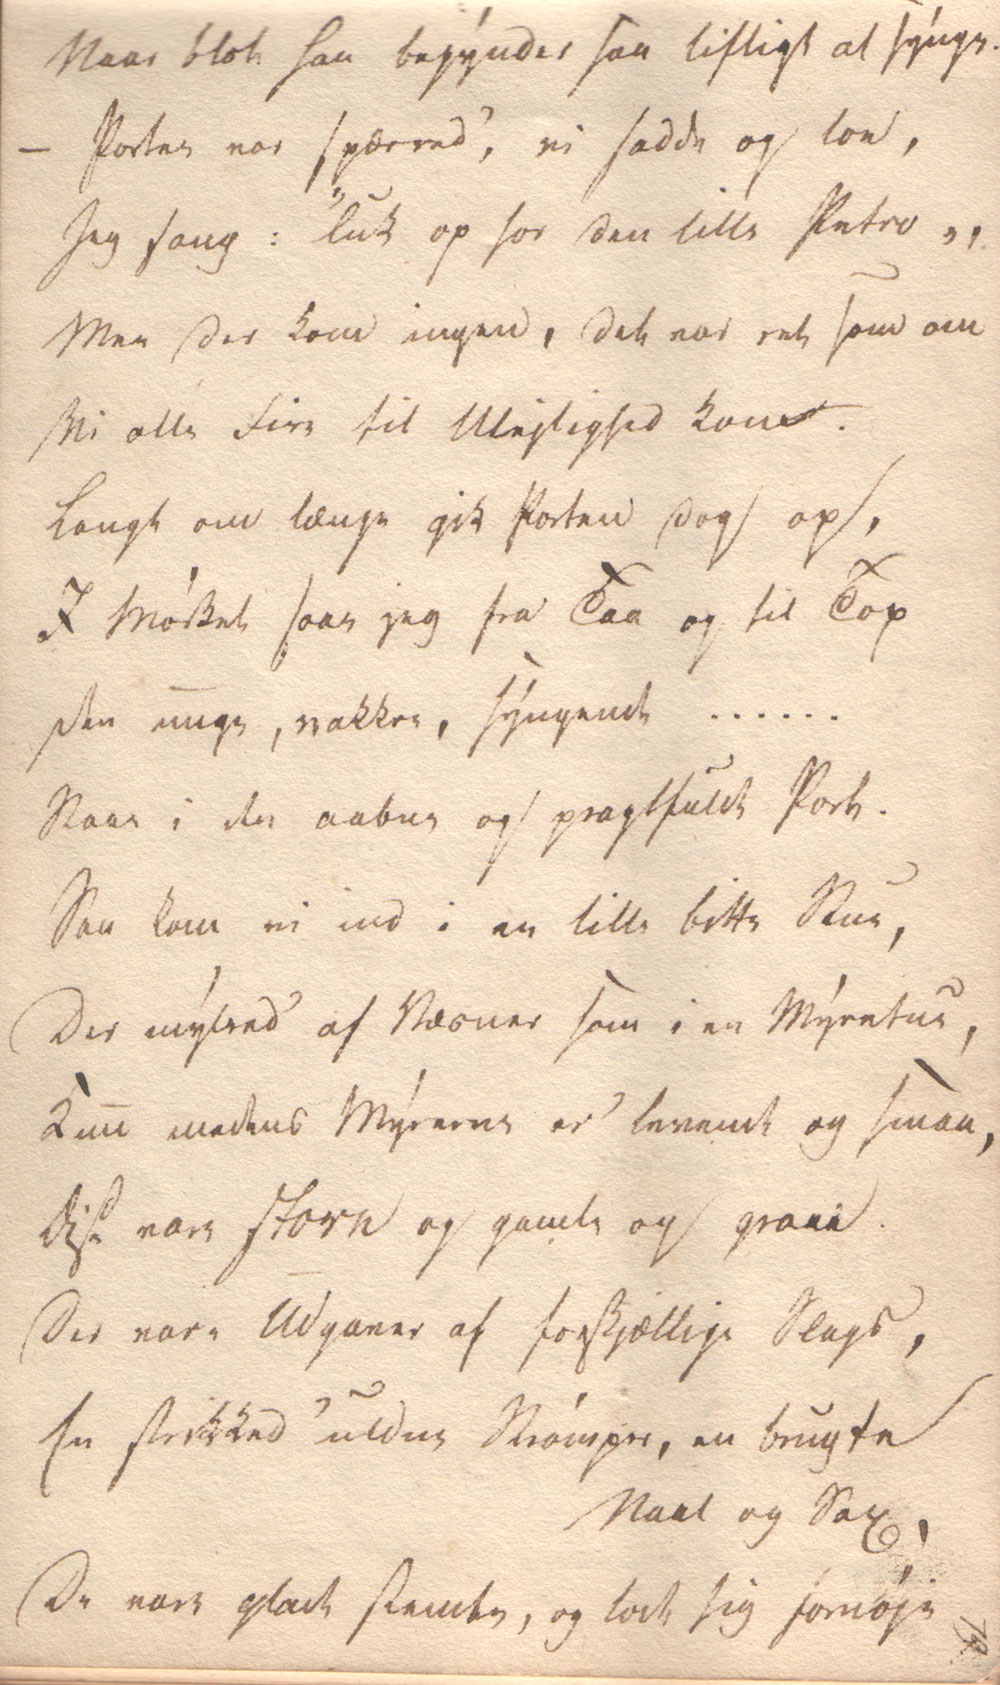 Naar blot han begynder saa lifligt at synge.
— Porten var spærred', vi sadde og loe,
Jeg sang: "luk op for den lille Petro",,
Men der kom ingen, det var ret som om
Vi alle Fire til Ulejlighed kom.
Langt om længe gik Porten dog op,
I Mörket saae jeg fra Taa og til Top
Den unge, vakkre, syngende ......
Staae i den aabne og pragtfulde Port.
Saa kom vi ind i en lille bitte Stue,
Der mylred' af Væsner som i en Myretue,
Kun medens Myrerne er' levende og smaa,
Disse vare store og gamle og graae.
Der vare Udgaver af forskjællige Slags,
En strikked' uldne Strömper, en brugte
Naal og Sax,
De vare glade stemte, og lode sig fornöje